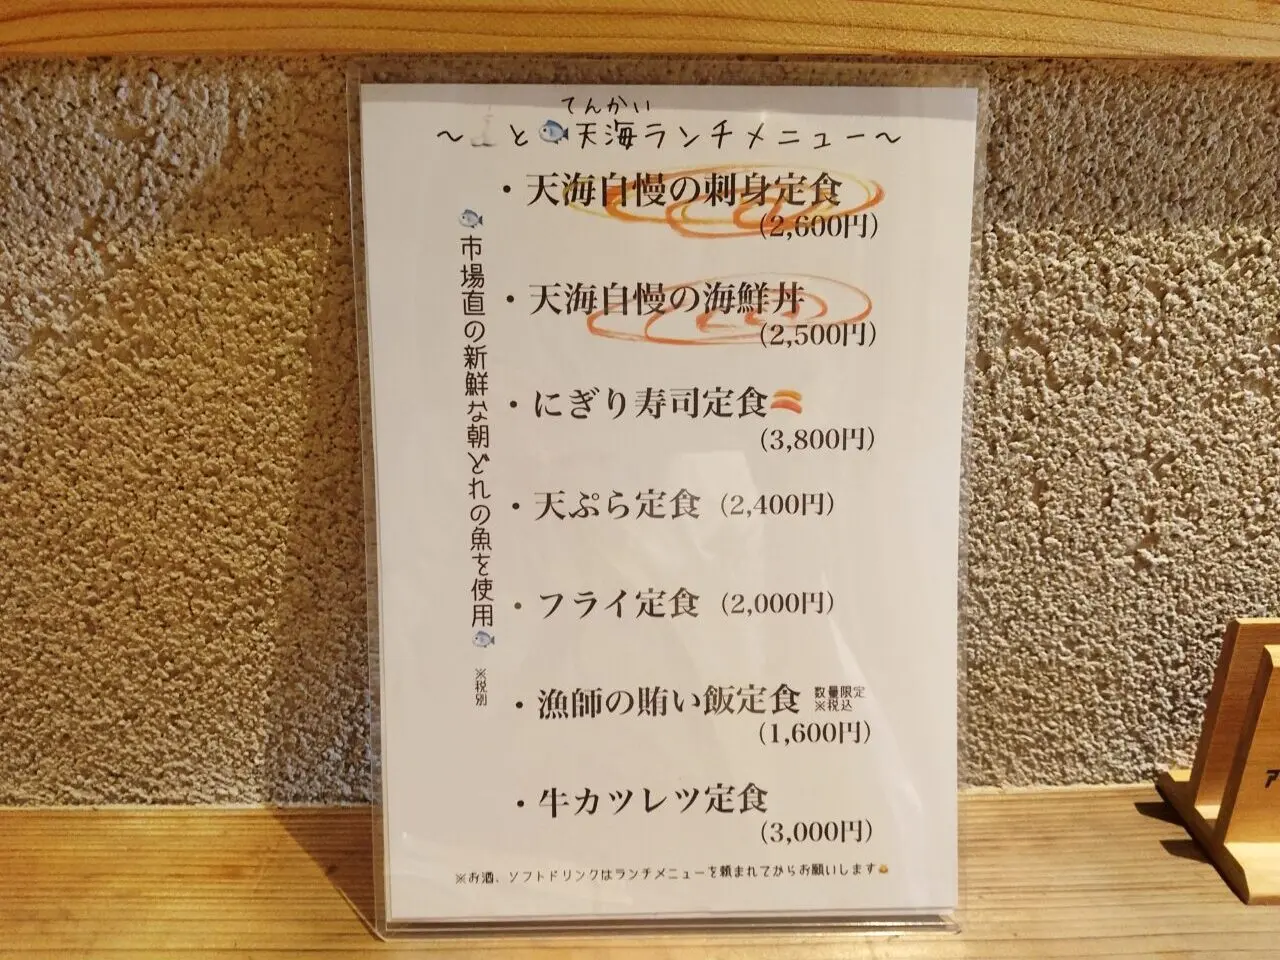 てんかい
〜 と 天海ランチメニュー〜
・天海自慢の刺身定食
(2,600円)
・天海自慢の海鮮丼
(2,500円)
・にぎり寿司定食
(3,800円)
・天ぷら定食 (2,400円)
・フライ定食 (2,000円)
・漁師の賄い飯定食 数量限定
※税込
(1,600円)
・牛カツレツ定食
(3,000円)
市場直の新鮮な朝どれの魚を使用
※税別
※お酒、ソフトドリンクはランチメニューを頼まれてからお願いします